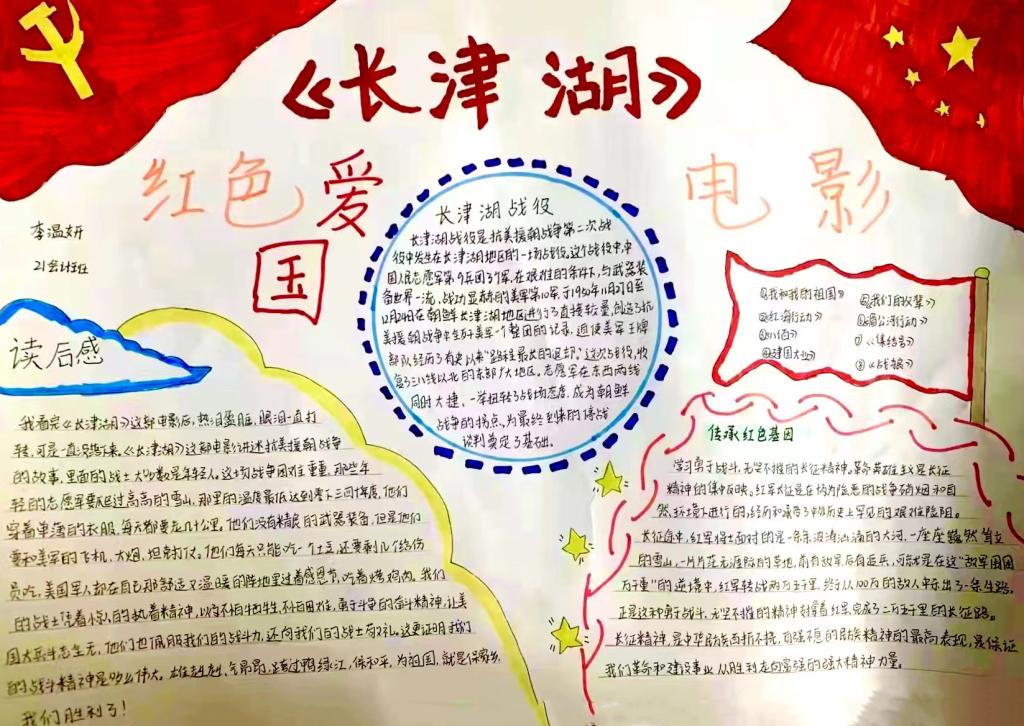 《长津湖》
红色爱
国
电影
李温妍
21会计班
长津湖战役
长津湖战役是抗美援朝战争第二次战
役中发生在长津湖地区的一场战役。这个战役中,中
国人民志愿军第9兵团3个军,在艰难的条件下,与武器装
备世界一流、战功显赫的美军第10军,于1950年11月27日至
12月24日在朝鲜长津湖地区进行了直接较量,创造了抗
美援朝战争中全歼美军一个整团的记录,迫使美军王牌
部队经历了有史以来"路程最长的退却"。这次战役,收
复了三八线以北的东部广大地区。志愿军在东西两线
同时大捷,一举扭转了战场态度,成为朝鲜
战争的拐点,为最终到来的停战
谈判奠定了基础。
①《我和我的祖国》
②《红海行动》
③《八佰》
④《建国大业》
⑤《我们的父辈》
⑥《湄公河行动》
⑦《集结号》
⑧《战狼》
读后感
我看完《长津湖》这部电影后,热泪盈眶,眼泪一直打
转,可是一直没落下来。《长津湖》这部电影讲述抗美援朝战争
的故事,里面的战士大多数是年轻人。这场战争困难重重,那些年
轻的志愿军要越过高高的雪山,那里的温度最低达到零下三四十度,他们
穿着单薄的衣服,每天都要走几十公里,他们没有精良的武器装备,但是他们
要和美军的飞机、大炮、坦克打仗。他们每天只能吃一个土豆,还要剩几个给伤
员吃,美国军人却在自己那舒适又温暖的阵地里过着感恩节,吃着烤鸡肉。我们
的战士凭着惊人的执着精神,以及不怕牺牲,不怕困难,勇于斗争的奋斗精神,让美
国大兵斗志全无,他们也佩服我们的战斗力,还向我们的战士敬礼。这更证明我们
的战斗精神是多么伟大。雄赳赳,气昂昂,跨过鸭绿江,保和平,为祖国,就是保家乡,
我们胜利了!
传承红色基因
学习勇于战斗,无坚不摧的长征精神。革命英雄主义是长征
精神的集中反映。红军长征是在极为险恶的战争硝烟和自
然环境下进行的,经历和承受了中外历史上罕见的艰难险阻。
长征途中,红军将士面对的是一条条波涛汹涌的大河,一座座巍然耸立
的雪山,一片片茫无涯际的草地,前有敌军后有追兵,可就是在这"敌军围困
万千重"的逆境中,红军转战两万五千里,终于从100万的敌人中杀出了一条生路。
正是这种勇于战斗,无坚不摧的精神支撑着红军完成了二万五千里的长征路。
长征精神,是中华民族百折不挠,自强不息的民族精神的最高表现,是保证
我们革命和建设事业从胜利走向富强的强大精神力量。